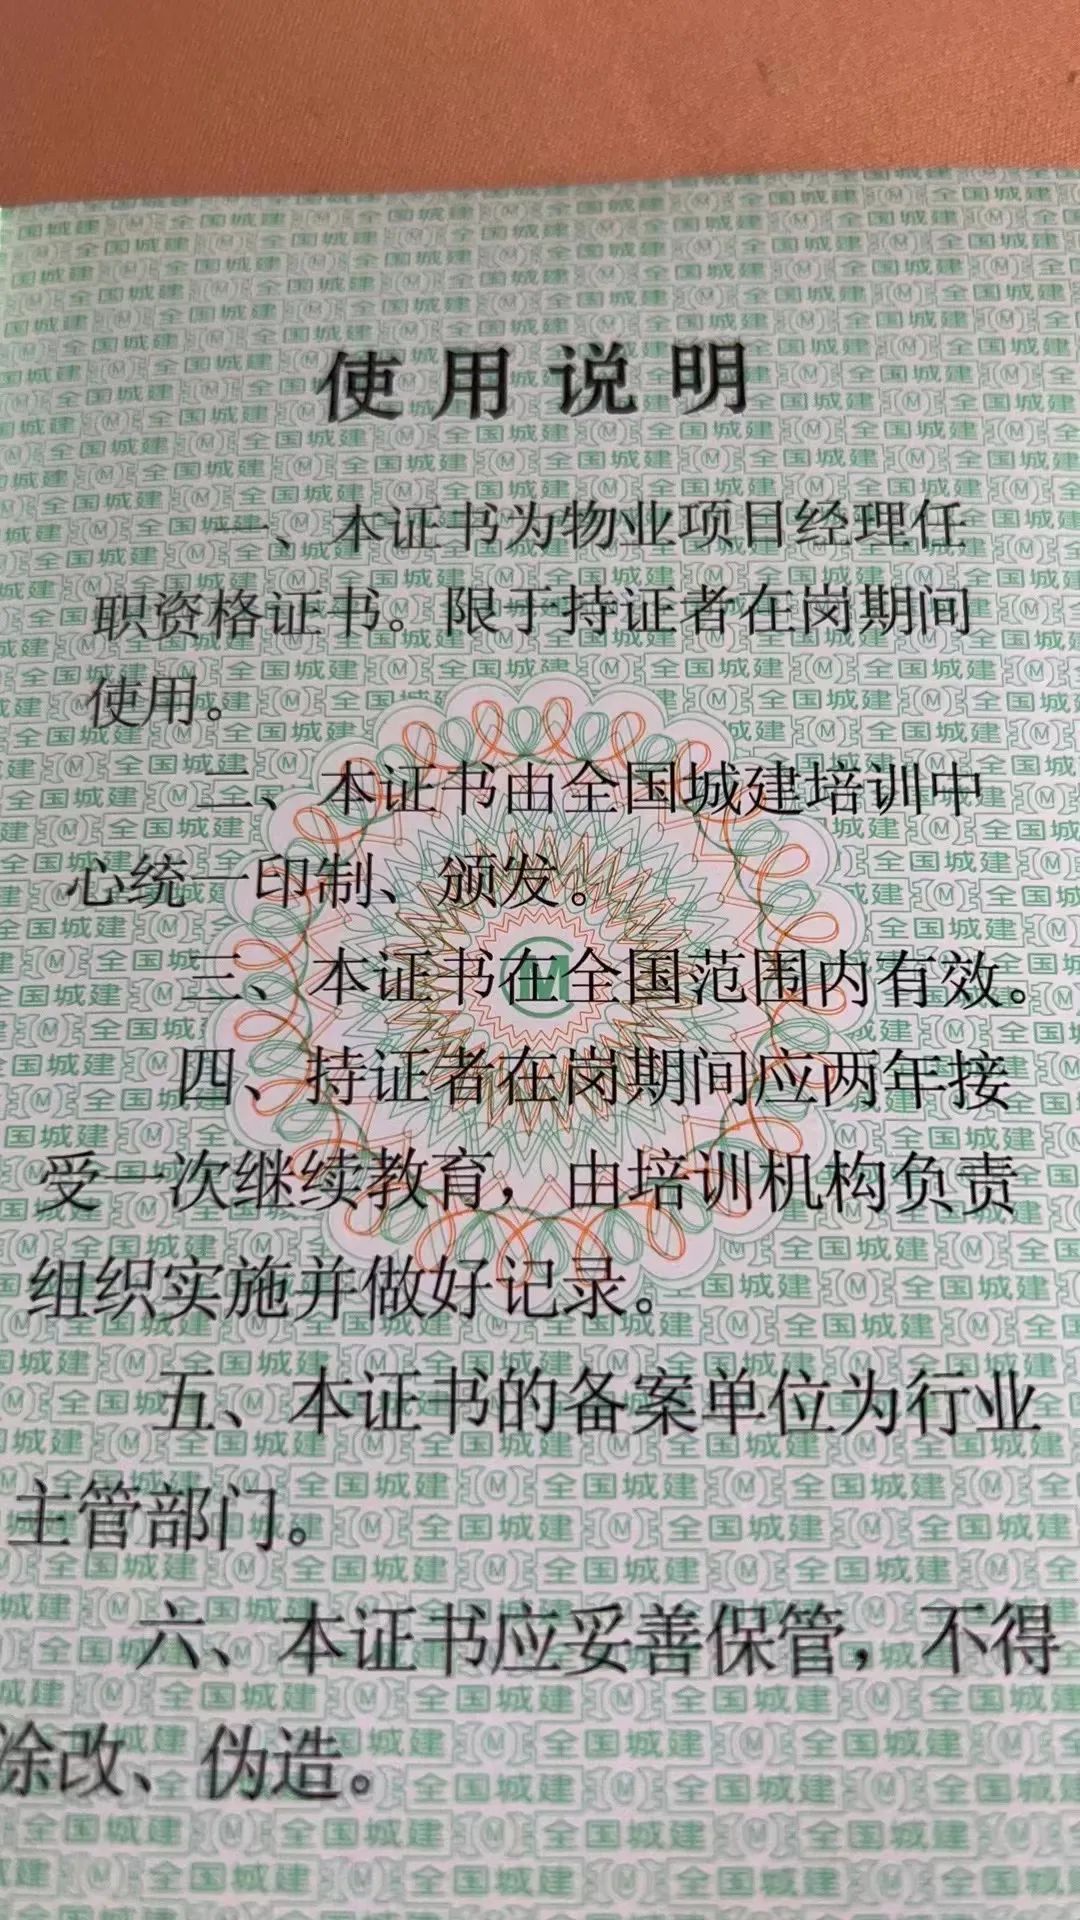 使用说明
一、本证书为物业项目经理任
职资格证书。限于持证者在岗期间
使用。
二、本证书由全国城建培训中
心统一印制、颁发。
三、本证书在全国范围内有效。
四、持证者在岗期间应两年接
受一次继续教育，由培训机构负责
组织实施并做好记录。
五、本证书的备案单位为行业
主管部门。
六、本证书应妥善保管，不得
涂改、伪造。